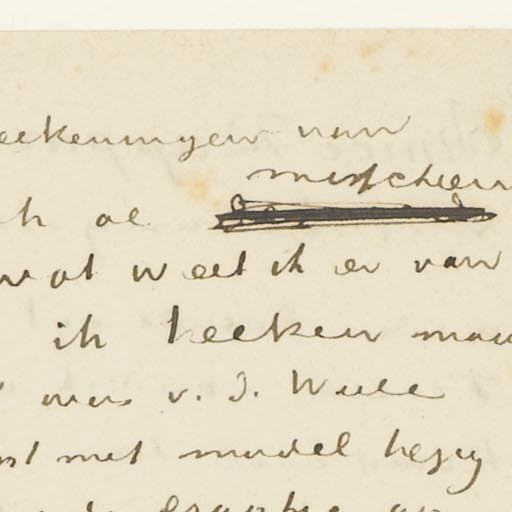 eekeningen van
misschien
ik de
wat weet ik er van
ik teeken maar
over v. d. Weele
met model bezig